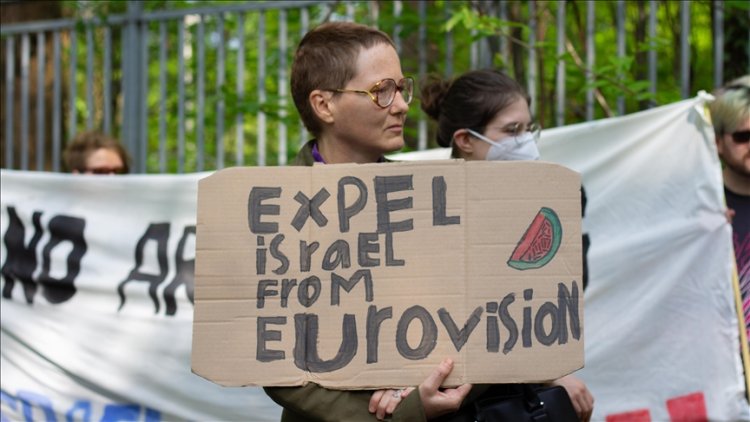 EXPEL
isRaEL
FRom
EURovision
NO AR